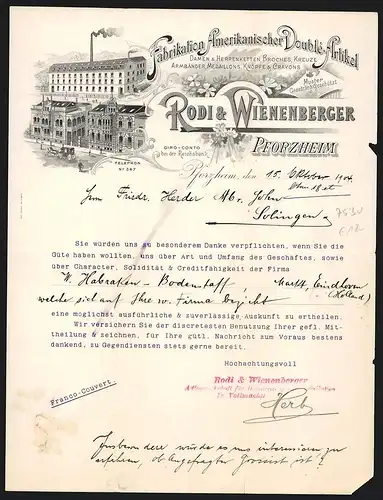 Fabrikation Amerikanischer Doublé-Artikel
DAMEN & HERRENKETTEN, BROCHES, KREUZE
ARMBÄNDER, MEDAILLONS, KNÖPFE & CRAYONS
RODI & WIENENBERGER
PFORZHEIM
GIRO-CONTO
bei der Reichsbank
TELEPHON
Nº 547
Pforzheim, den 15. Oktober 1904
Herrn Friedr. Herder Abr. Sohn
Solingen
Sie würden uns zu besonderem Danke verpflichten, wenn Sie die
Güte haben wollten, uns über Art und Umfang des Geschäftes, sowie
über Character, Solidität & Creditfähigkeit der Firma
W. Habraken - Bodenstaff, Markt, Eindhoven
(Holland)
welche sich auf Ihre w. Firma bezieht
eine möglichst ausführliche & zuverlässige Auskunft zu ertheilen.
Wir versichern Sie der discretesten Benutzung Ihrer gefl. Mit-
theilung & zeichnen, für Ihre gütl. Nachricht zum Voraus bestens
dankend, zu Gegendiensten stets gerne bereit.
Hochachtungsvoll
Rodi & Wienenberger
In Vollmacht
Herb
Franco-Couvert
Insbesondere würde es uns interessieren zu
erfahren, ob Angefragter Grossist ist?